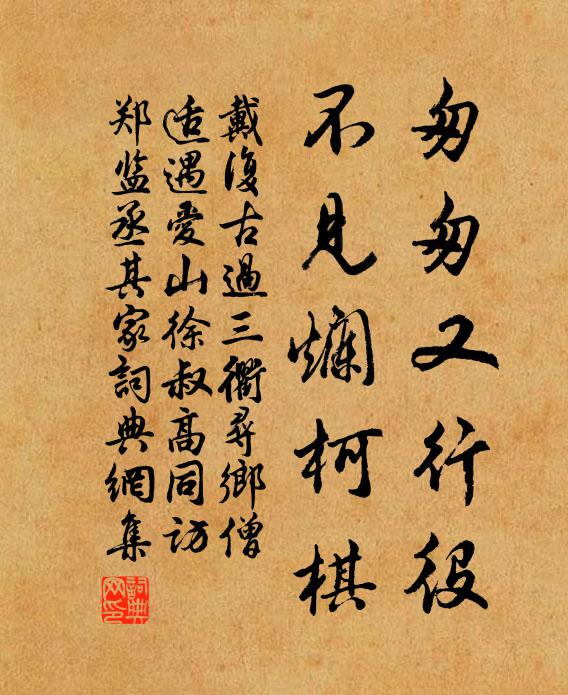 匆匆又行役
不见爛柯棋
戴復古過三衢寻鄉僧
适遇愛山徐叔高同访
郑监丞其家詞典網集
詞典網印